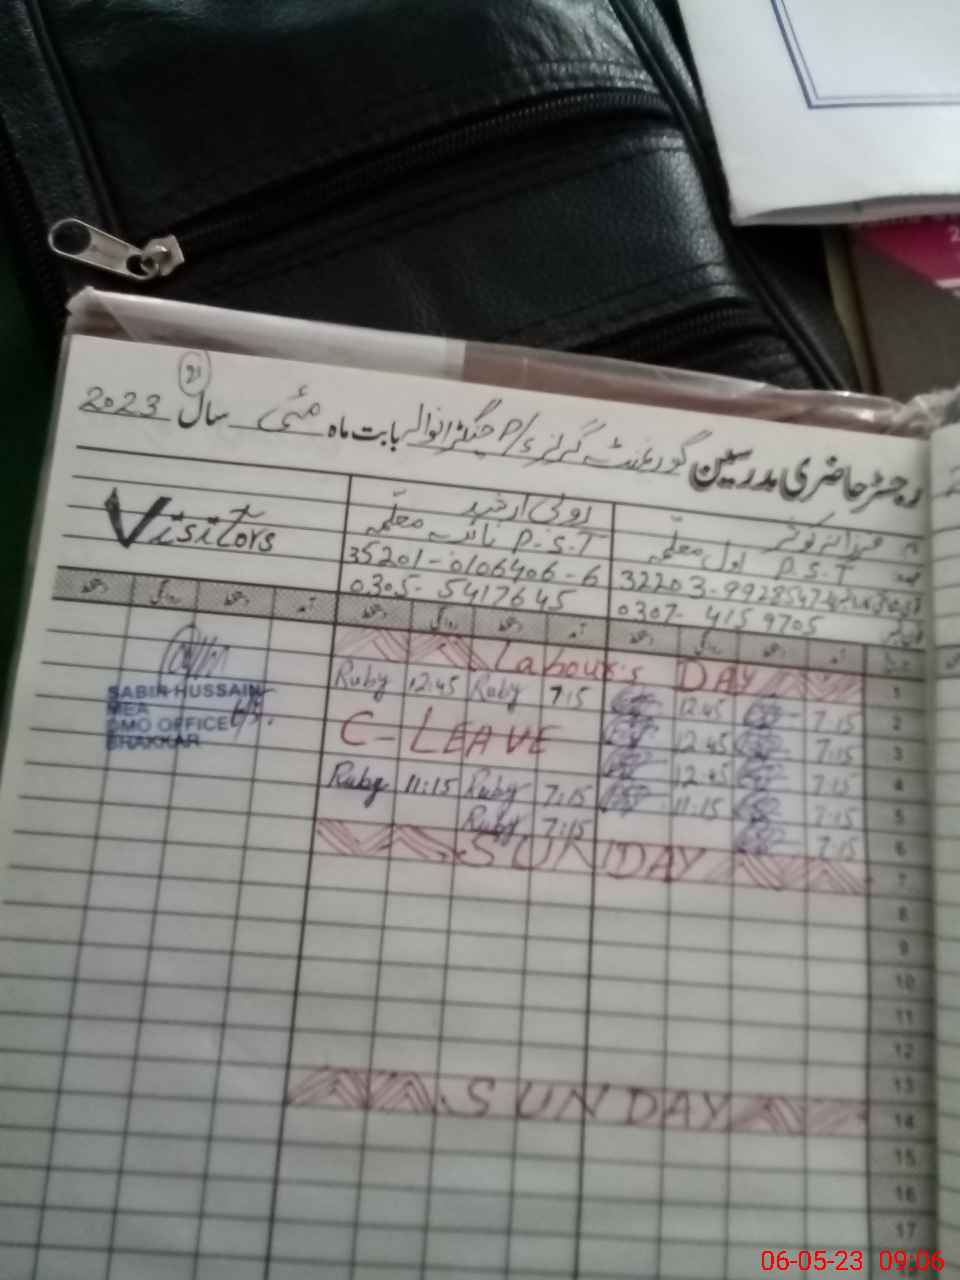 21
رجسٹر حاضری مدرسین گورنمنٹ گرلز P/ء جنگڑانوالہ بابت ماہ مئی سال 2023
Visitors
روبی ارشد
نام فرزانہ کوثر
P.S.T نائب معلمہ
عہدہ P.S.T اول معلمہ
35201-0106406-6
0305-5417645
0307-4159705
دستخط روانگی دستخط آمد دستخط روانگی دستخط آمد دستخط روانگی دستخط آمد
Labour's DAY 1
Ruby 12:45 Ruby 7:15 12:45 7:15 2
C-LEAVE 12:45 7:15 3
12:45 7:15 4
Ruby 11:15 Ruby 7:15 11:15 7:15 5
Ruby 7:15 7:15 6
SUNDAY 7
8
9
10
11
12
13
SUNDAY 14
15
16
17
SABIR HUSSAIN
MEA
DMO OFFICE
BHAKKAR
06-05-23 09:06